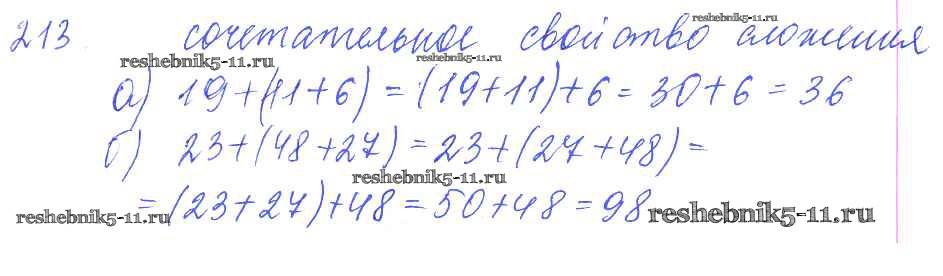 reshebnik5-11.ru
213 сочетательное свойство сложения
reshebnik5-11.ru reshebnik5-11.ru
а) 19+(11+6) = (19+11)+6 = 30+6 = 36
б) 23+(48+27) = 23+(27+48) =
reshebnik5-11.ru
= (23+27)+48 = 50+48 = 98
reshebnik5-11.ru reshebnik5-11.ru